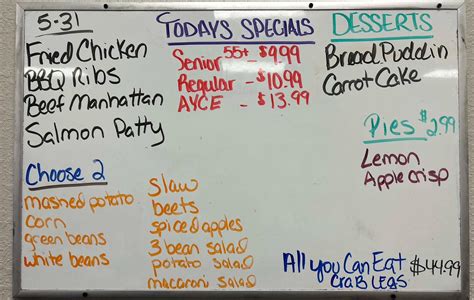 5-31
Fried Chicken
BBQ Ribs
Beef Manhattan
Salmon Patty
Choose 2
mashed potato
corn
green beans
white beans
Slaw
beets
spiced apples
3 bean salad
potato salad
macaroni salad
TODAYS SPECIALS
Senior 55+ $9.99
Regular - $10.99
AYCE - $13.99
DESSERTS
Bread Puddin
Carrot Cake
Pies $2.99
Lemon
Apple crisp
All you Can Eat $44.99
CRAB LEGS